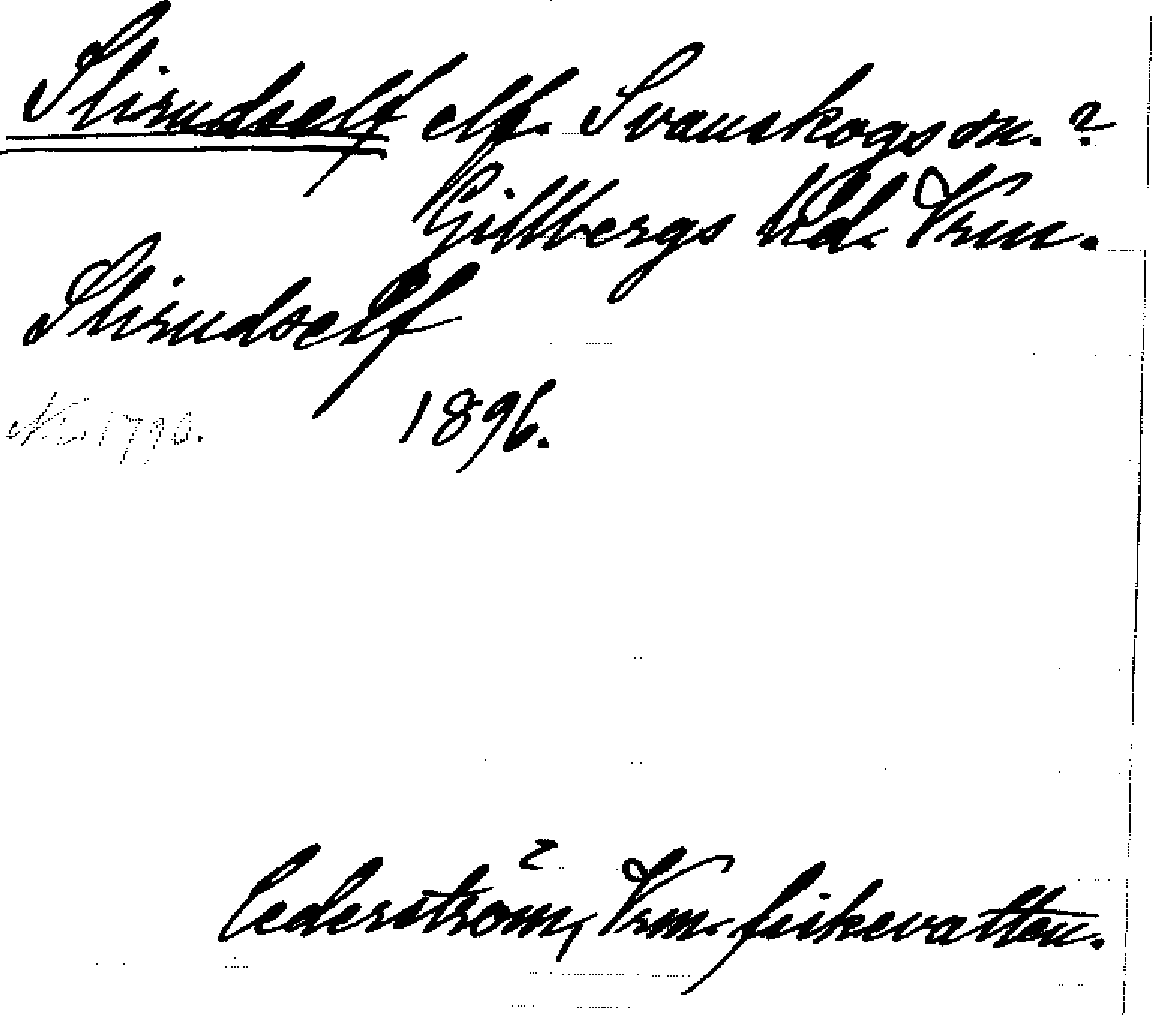 Slirudself elf. Svanskogs sn. ?
Gillbergs hd. Vrm.
Slirudself
No. 1796. 1896.
Cederström, Vrm. fiskevatten.